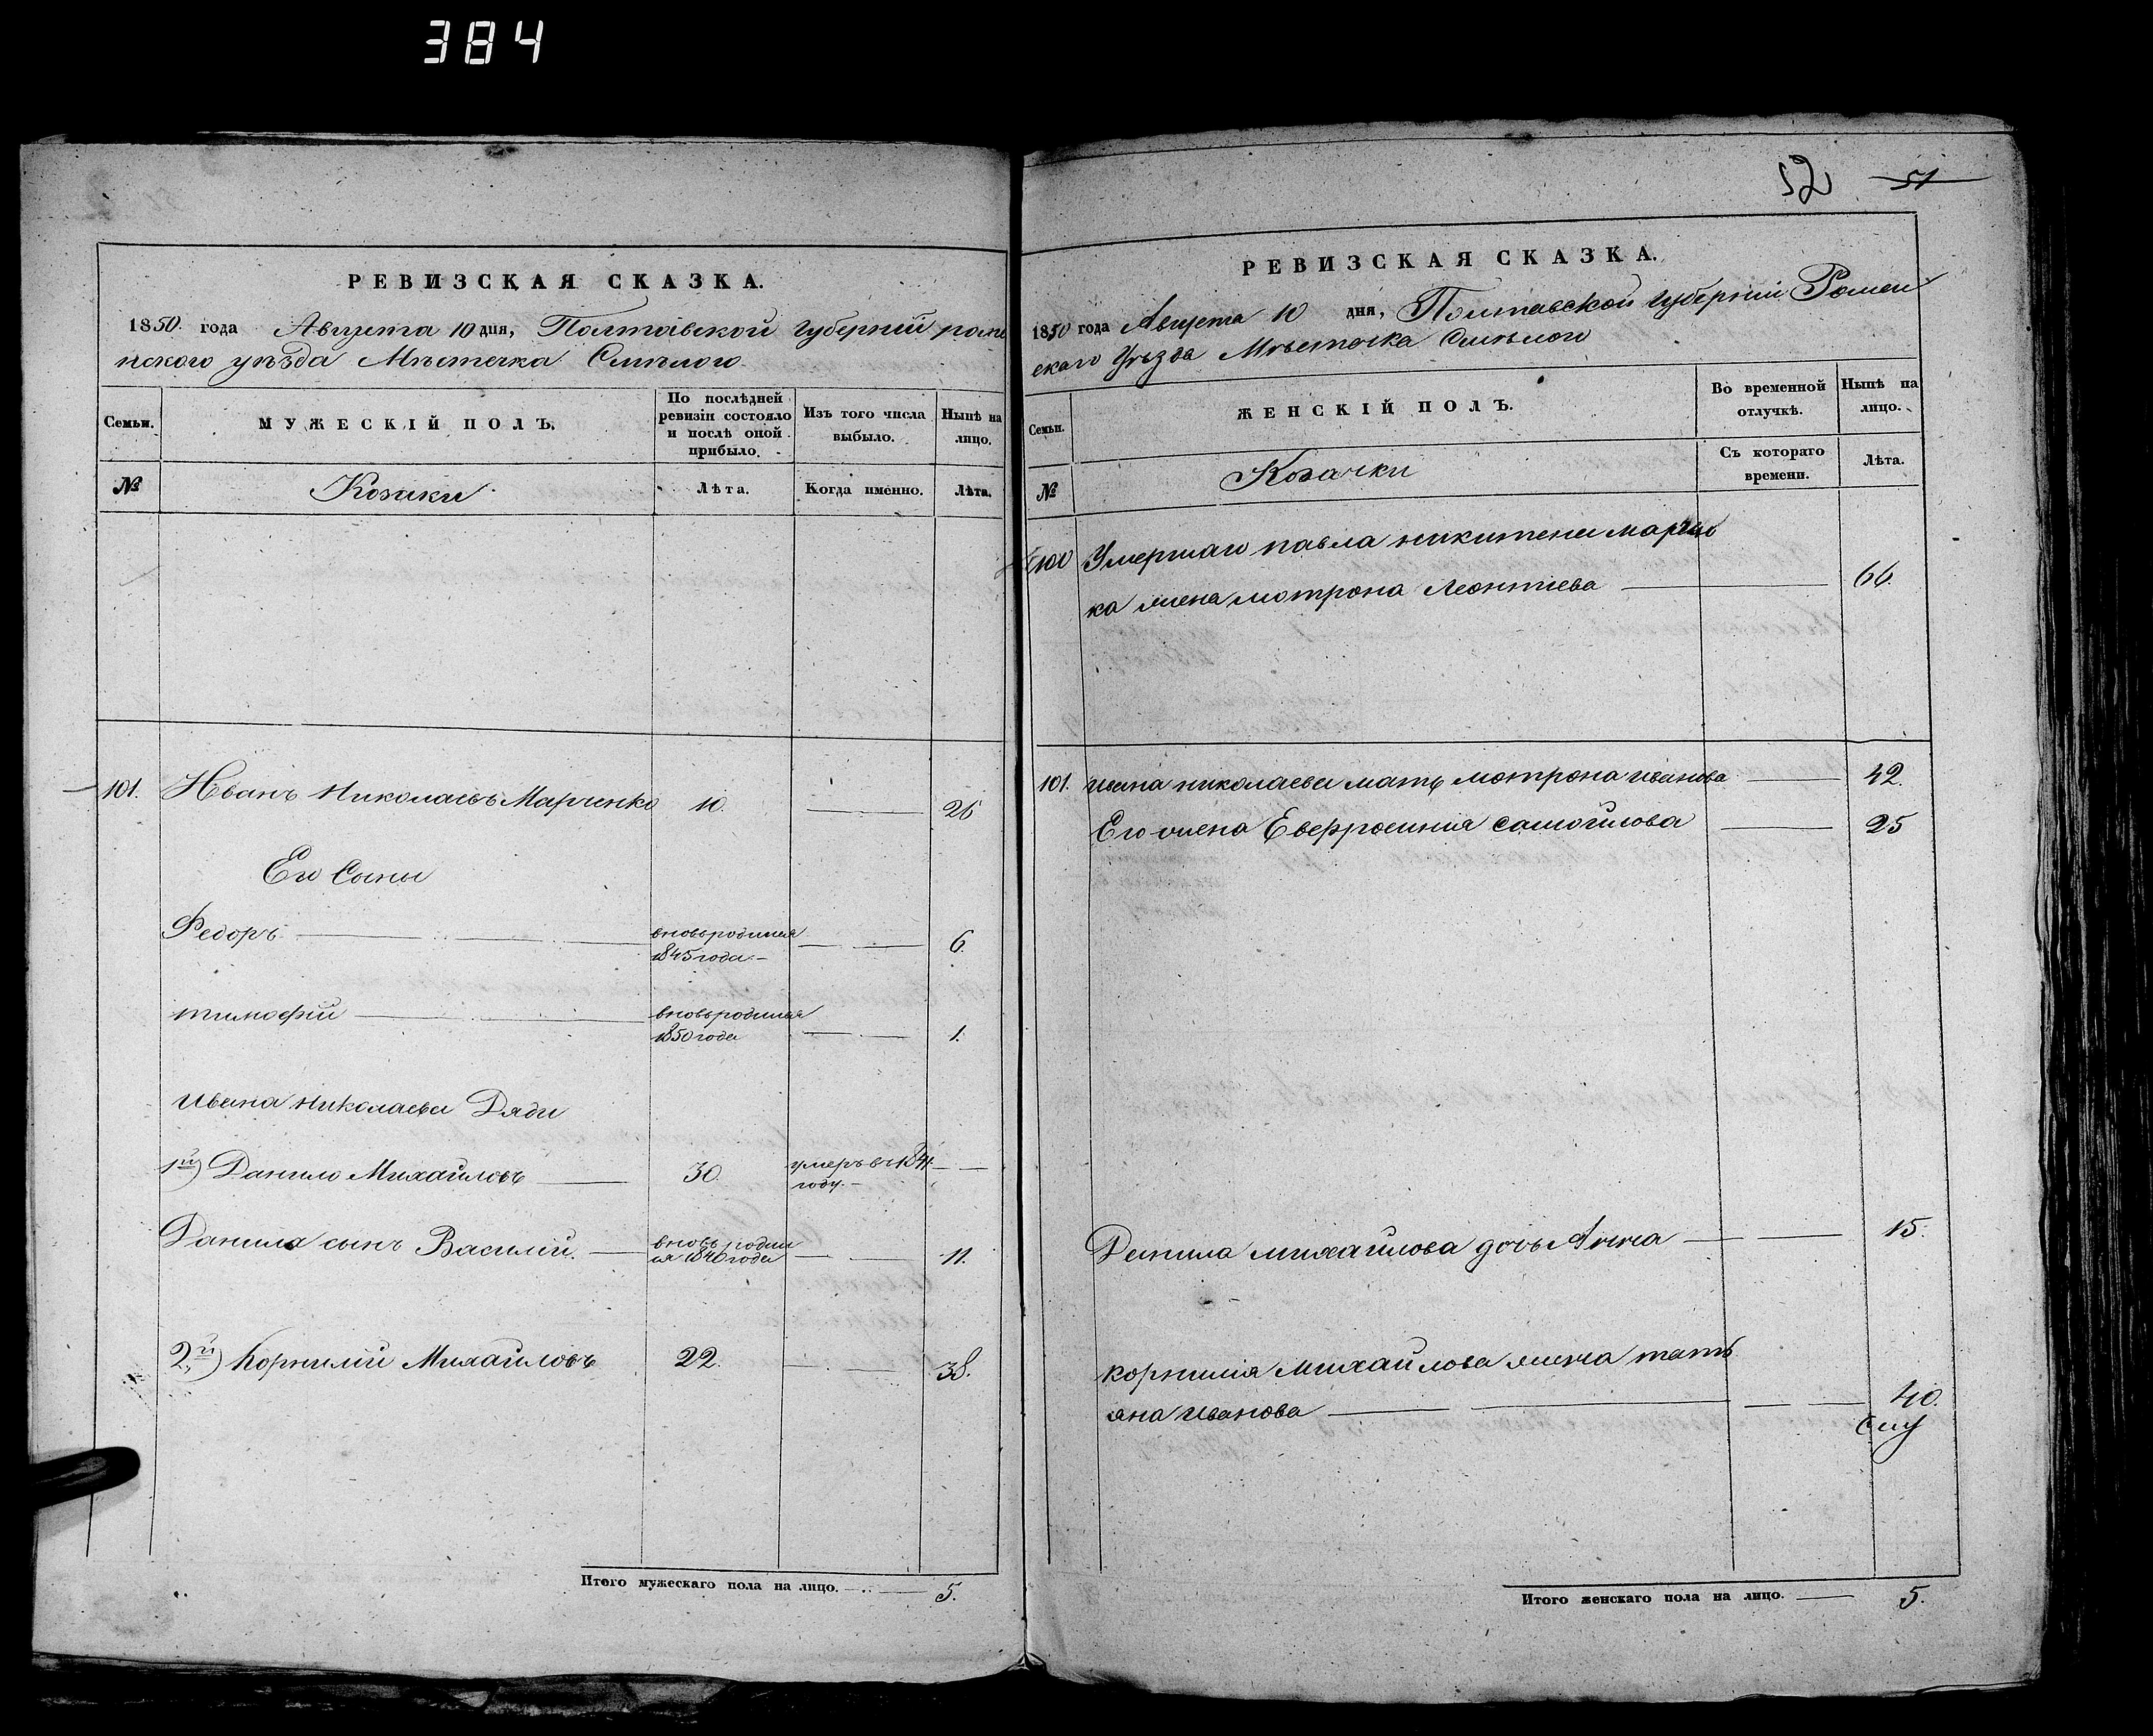 384
РЕВИЗСКАЯ СКАЗКА.
1850 года Августа 10 дня, Полтавской губерніи роме
нского уѣзда Мѣстечка Смѣлого
Семьи.
МУЖЕСКІЙ ПОЛЪ.
По послѣдней
ревизіи состояло
и послѣ оной
прибыло.
Изъ того числа
выбыло.
Нынѣ на
лицо.
№
Козаки
Лѣта.
Когда именно.
Лѣта.
101. Иванъ Николаевъ Марченко 10. 26
Его Сыны
Федоръ вновьродился 6.
1845 года
тимофій вновьродился
1850 года 1.
Ивана Николаева Дяди
1й) Данило Михайловъ 30. умеръ въ 1841
году.
Данила сынъ Василій. вновь родил
ся 1840 года 11.
2й) Корнилій Михайловъ 22. 38.
Итого мужескаго пола на лицо. 5.
52 51
РЕВИЗСКАЯ СКАЗКА.
1850 года Августа 10 дня, Полтавской губерніи Ромен
скаго Уѣзда Мѣстечка Смѣлого
Семьи.
ЖЕНСКІЙ ПОЛЪ.
Во временной
отлучкѣ.
Нынѣ на
лицо.
№
Козачки
Съ котораго
времени.
Лѣта.
100 Умершаго павла никитена марчен
ка жена мотрона Леонтіева 66.
101. Ивана николаева мать мотрона иванова 42.
Его жена Евфросинія самойлова 25
Данила михайлова дочь Анна 15.
корнилія Михайлова жена тать
яна Иванова 40.
Итого женскаго пола на лицо. 5.